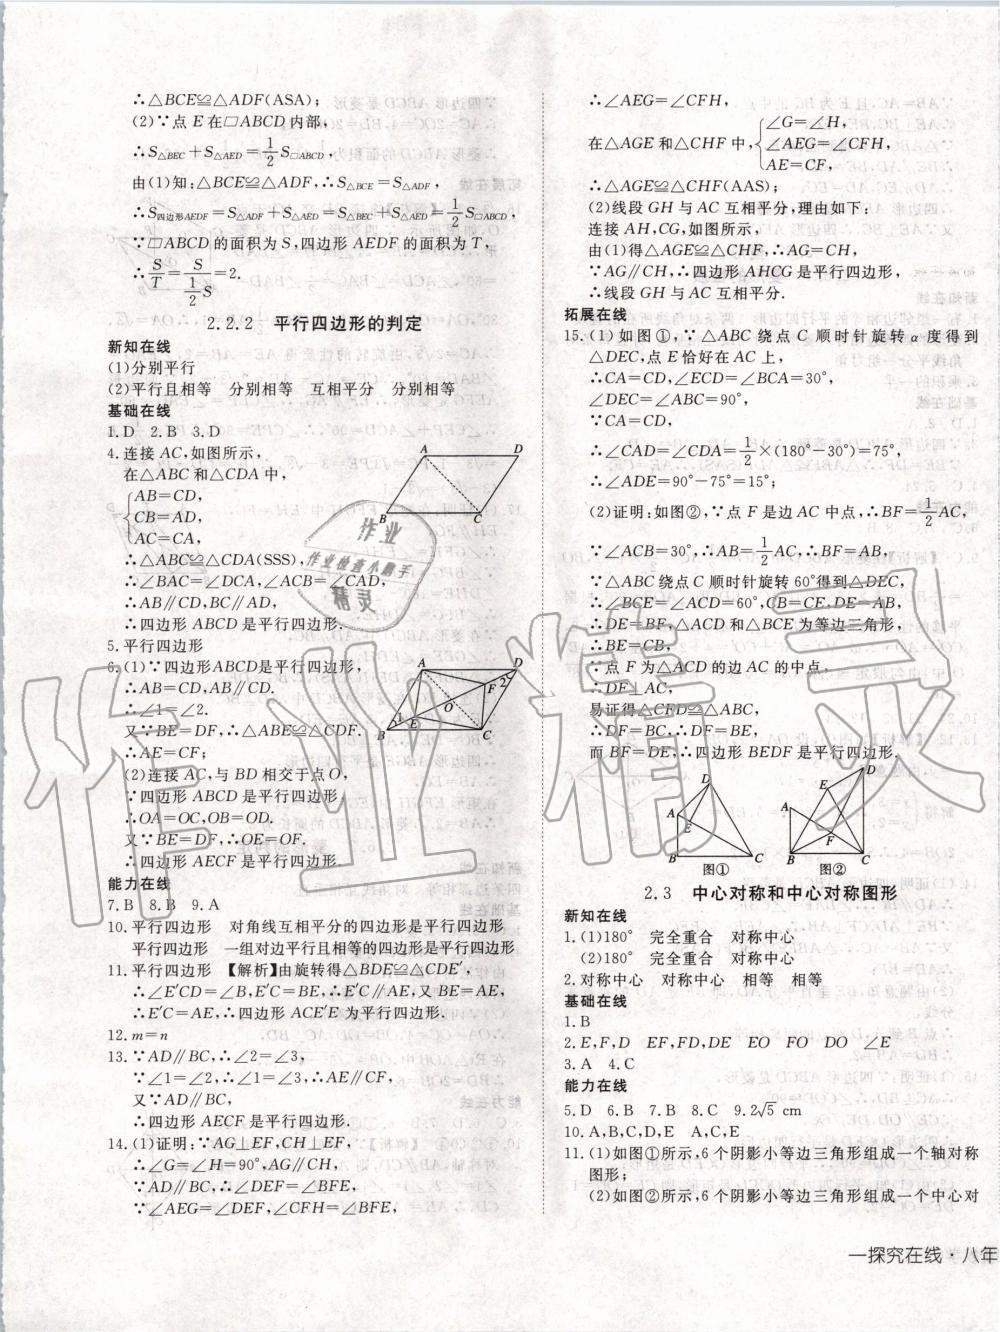 ∴△BCE≌△ADF(ASA);
(2)∵点 E 在□ABCD 内部,
∴S△BEC+S△AED=1/2 S□ABCD,
由(1)知:△BCE≌△ADF,∴S△BCE=S△ADF,
∴S四边形AEDF=S△ADF+S△AED=S△BEC+S△AED=1/2 S□ABCD,
∵□ABCD 的面积为 S,四边形 AEDF 的面积为 T,
∴S/T=S/(1/2 S)=2.
2.2.2 平行四边形的判定
新知在线
(1)分别平行
(2)平行且相等 分别相等 互相平分 分别相等
基础在线
1.D 2.B 3.D
4.连接 AC,如图所示,
在△ABC 和△CDA 中,
AB=CD,
CB=AD,
AC=CA,
∴△ABC≌△CDA(SSS),
∴∠BAC=∠DCA,∠ACB=∠CAD,
∴AB∥CD,BC∥AD,
∴四边形 ABCD 是平行四边形.
A D
B C
5.平行四边形
6.(1)∵四边形ABCD是平行四边形,
∴AB=CD,AB∥CD.
∴∠1=∠2.
又∵BE=DF,∴△ABE≌△CDF.
∴AE=CF;
(2)连接 AC,与 BD 相交于点 O,
∵四边形 ABCD 是平行四边形
∴OA=OC,OB=OD.
又∵BE=DF,∴OE=OF.
∴四边形 AECF 是平行四边形.
A D
F 2
O
1 E
B C
能力在线
7.B 8.B 9.A
10.平行四边形 对角线互相平分的四边形是平行四边形
平行四边形 一组对边平行且相等的四边形是平行四边形
11.平行四边形 【解析】由旋转得△BDE≌△CDE′,
∴∠E′CD=∠B,E′C=BE,∴E′C∥AE,又 BE=AE,
∴E′C=AE,∴四边形 ACE′E 为平行四边形.
12.m=n
13.∵AD∥BC,∴∠2=∠3,
∵∠1=∠2,∴∠1=∠3,∴AE∥CF,
又∵AD∥BC,
∴四边形 AECF 是平行四边形.
14.(1)证明:∵AG⊥EF,CH⊥EF,
∴∠G=∠H=90°,∵AD∥BC,
∵∠AEG=∠DEF,∠CFH=∠BFE,
∴∠AEG=∠CFH,
在△AGE 和△CHF 中,
∠G=∠H,
∠AEG=∠CFH,
AE=CF,
∴△AGE≌△CHF(AAS);
(2)线段 GH 与 AC 互相平分,理由如下:
连接 AH,CG,如图所示,
由(1)得△AGE≌△CHF,∴AG=CH,
∵AG∥CH,∴四边形 AHCG 是平行四边形,
∴线段 GH 与 AC 互相平分.
拓展在线
15.(1)如图①,∵△ABC 绕点 C 顺时针旋转 α 度得到
△DEC,点 E 恰好在 AC 上,
∴CA=CD,∠ECD=∠BCA=30°,
∠DEC=∠ABC=90°,
∵CA=CD,
∴∠CAD=∠CDA=1/2×(180°-30°)=75°,
∴∠ADE=90°-75°=15°;
(2)证明:如图②,∵点 F 是边 AC 中点,∴BF=1/2 AC,
∵∠ACB=30°,∴AB=1/2 AC,∴BF=AB,
∵△ABC 绕点 C 顺时针旋转 60°得到△DEC,
∴∠BCE=∠ACD=60°,CB=CE,DE=AB,
∴DE=BF,△ACD 和△BCE 为等边三角形,
∴BE=CB,
∵点 F 为△ACD 的边 AC 的中点,
∴DF⊥AC,
易证得△CFD≌△ABC,
∴DF=BC,∴DF=BE,
而 BF=DE,∴四边形 BEDF 是平行四边形.
D
A
E
B C
图①
D
E
A
F
B C
图②
2.3 中心对称和中心对称图形
新知在线
1.(1)180° 完全重合 对称中心
(2)180° 完全重合 对称中心
2.对称中心 对称中心 相等 相等
基础在线
1.B
2.E,F,D EF,FD,DE EO FO DO ∠E
3.A 4.C
能力在线
5.D 6.B 7.B 8.C 9.2√5 cm
10.A,B,C,D,E A,C,E
11.(1)如图①所示,6 个阴影小等边三角形组成一个轴对称
图形;
(2)如图②所示,6 个阴影小等边三角形组成一个中心对
一探究在线·八年
作业
作业检查小助手
精灵
作业精灵